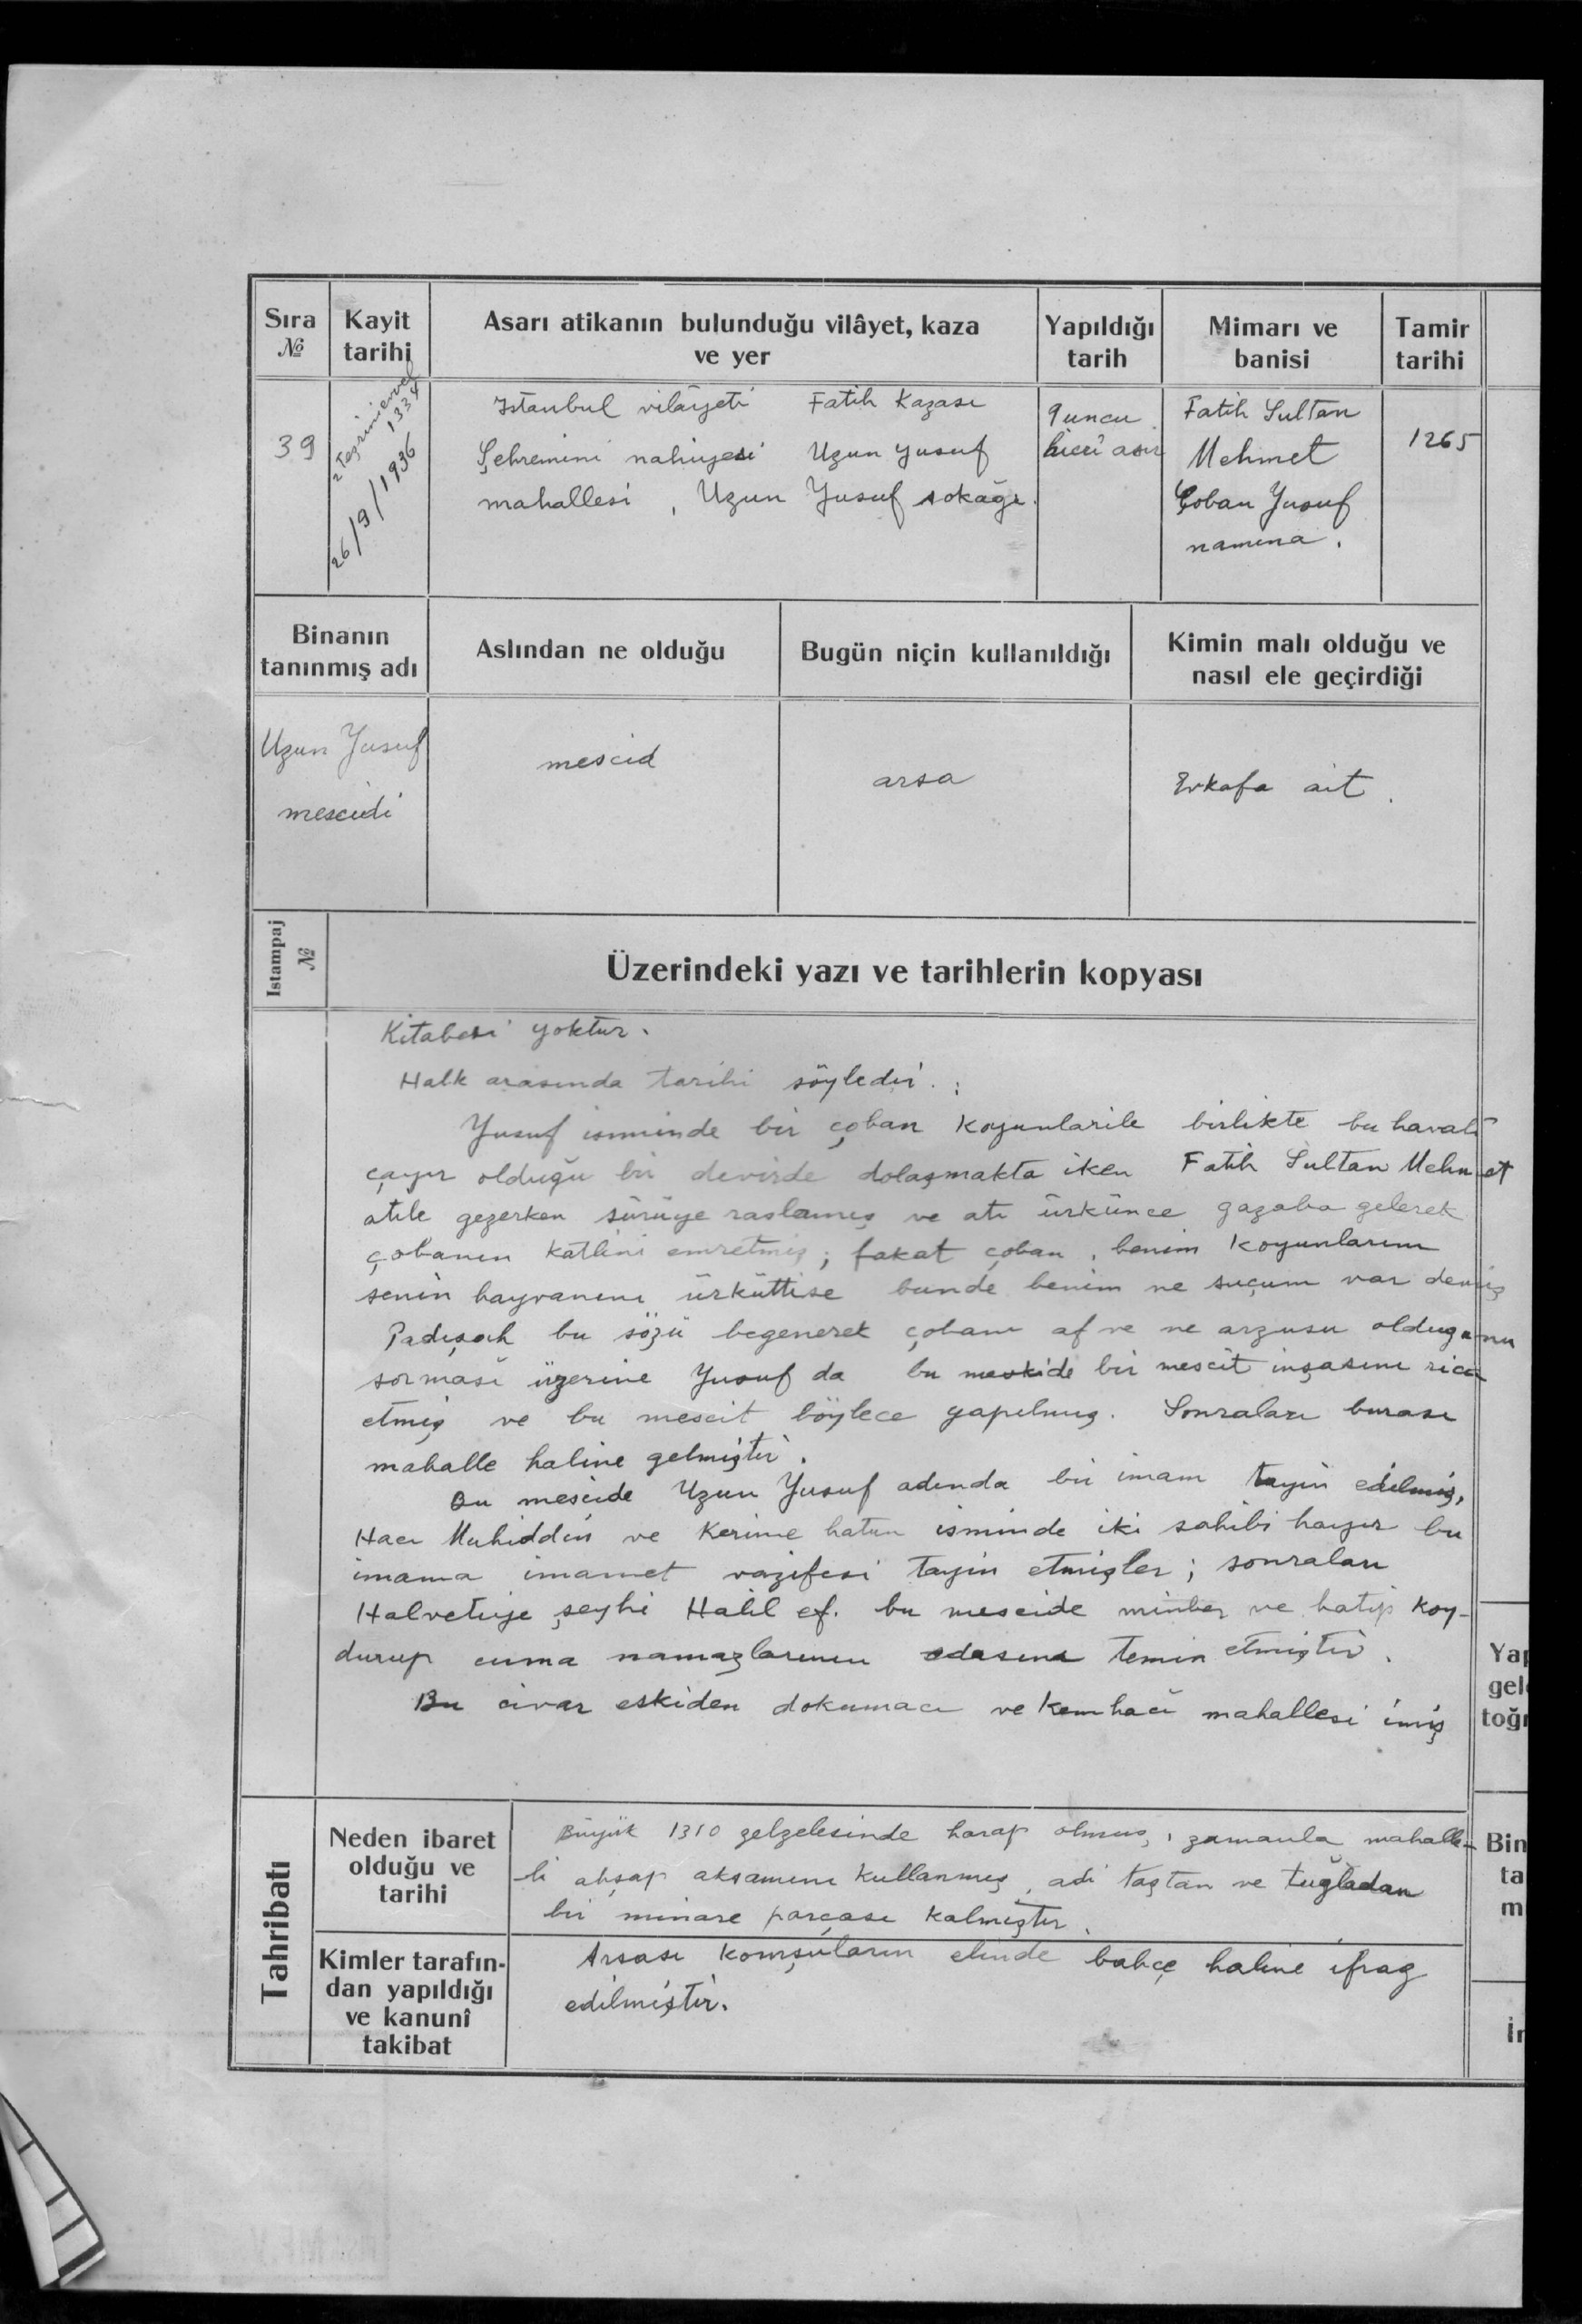 Sıra № Kayit tarihi Asarı atikanın bulunduğu vilâyet, kaza ve yer Yapıldığı tarih Mimarı ve banisi Tamir tarihi
39
2 Teşrinievvel 1334
26/9/1936
Istanbul vilâyeti Fatih Kazası
Şehremini nahiyesi Uzun Yusuf
mahallesi, Uzun Yusuf sokağı.
9uncu
hicrî asır
Fatih Sultan
Mehmet
Çoban Yusuf
namına.
1265
Binanın tanınmış adı Aslından ne olduğu Bugün niçin kullanıldığı Kimin malı olduğu ve nasıl ele geçirdiği
Uzun Yusuf
mescidi
mescid
arsa
Evkafa ait.
Istampaj №
Üzerindeki yazı ve tarihlerin kopyası
Kitabesi yoktur.
Halk arasında tarihi söyledir.:
Yusuf isminde bir çoban koyunlarile birlikte bu havali
çayır olduğu bir devirde dolaşmakta iken Fatih Sultan Mehmet
atile gezerken sürüye raslamış ve atı ürkünce gazaba gelerek
çobanın katlini emretmiş; fakat çoban, benim koyunlarım
senin hayvanını ürküttise bunde benim ne suçum var demiş
Padişah bu sözü begenerek çobanı af ve ne arzusu oldugunu
sorması üzerine Yusuf da bu mevkide bir mescit inşasını rica
etmiş ve bu mescit böylece yapılmış. Sonraları burası
mahalle haline gelmiştir.
Bu mescide Uzun Yusuf adında bir imam tayin edilmiş,
Hacı Muhiddin ve Kerime hatun isminde iki sahibi hayır bu
imama imamet vazifesi tayin etmişler; sonraları
Halvetiye şeyhi Halil ef. bu mescide minber ve hatip koy-
durup cuma namazlarının edasına temin etmiştir.
Bu civar eskiden dokumacı ve Kemhacı mahallesi imiş
Tahribatı
Neden ibaret olduğu ve tarihi
Büyük 1310 zelzelesinde harap olmuş, zamanla mahalle-
li ahşap aksamını kullanmış, adi taştan ve tuğladan
bir minare parçası kalmıştır.
Kimler tarafın-
dan yapıldığı
ve kanunî
takibat
Arsası komşuların elinde bahçe haline ifrağ
edilmiştir.
Yap
gel
toğr
Bin
ta
m
İr